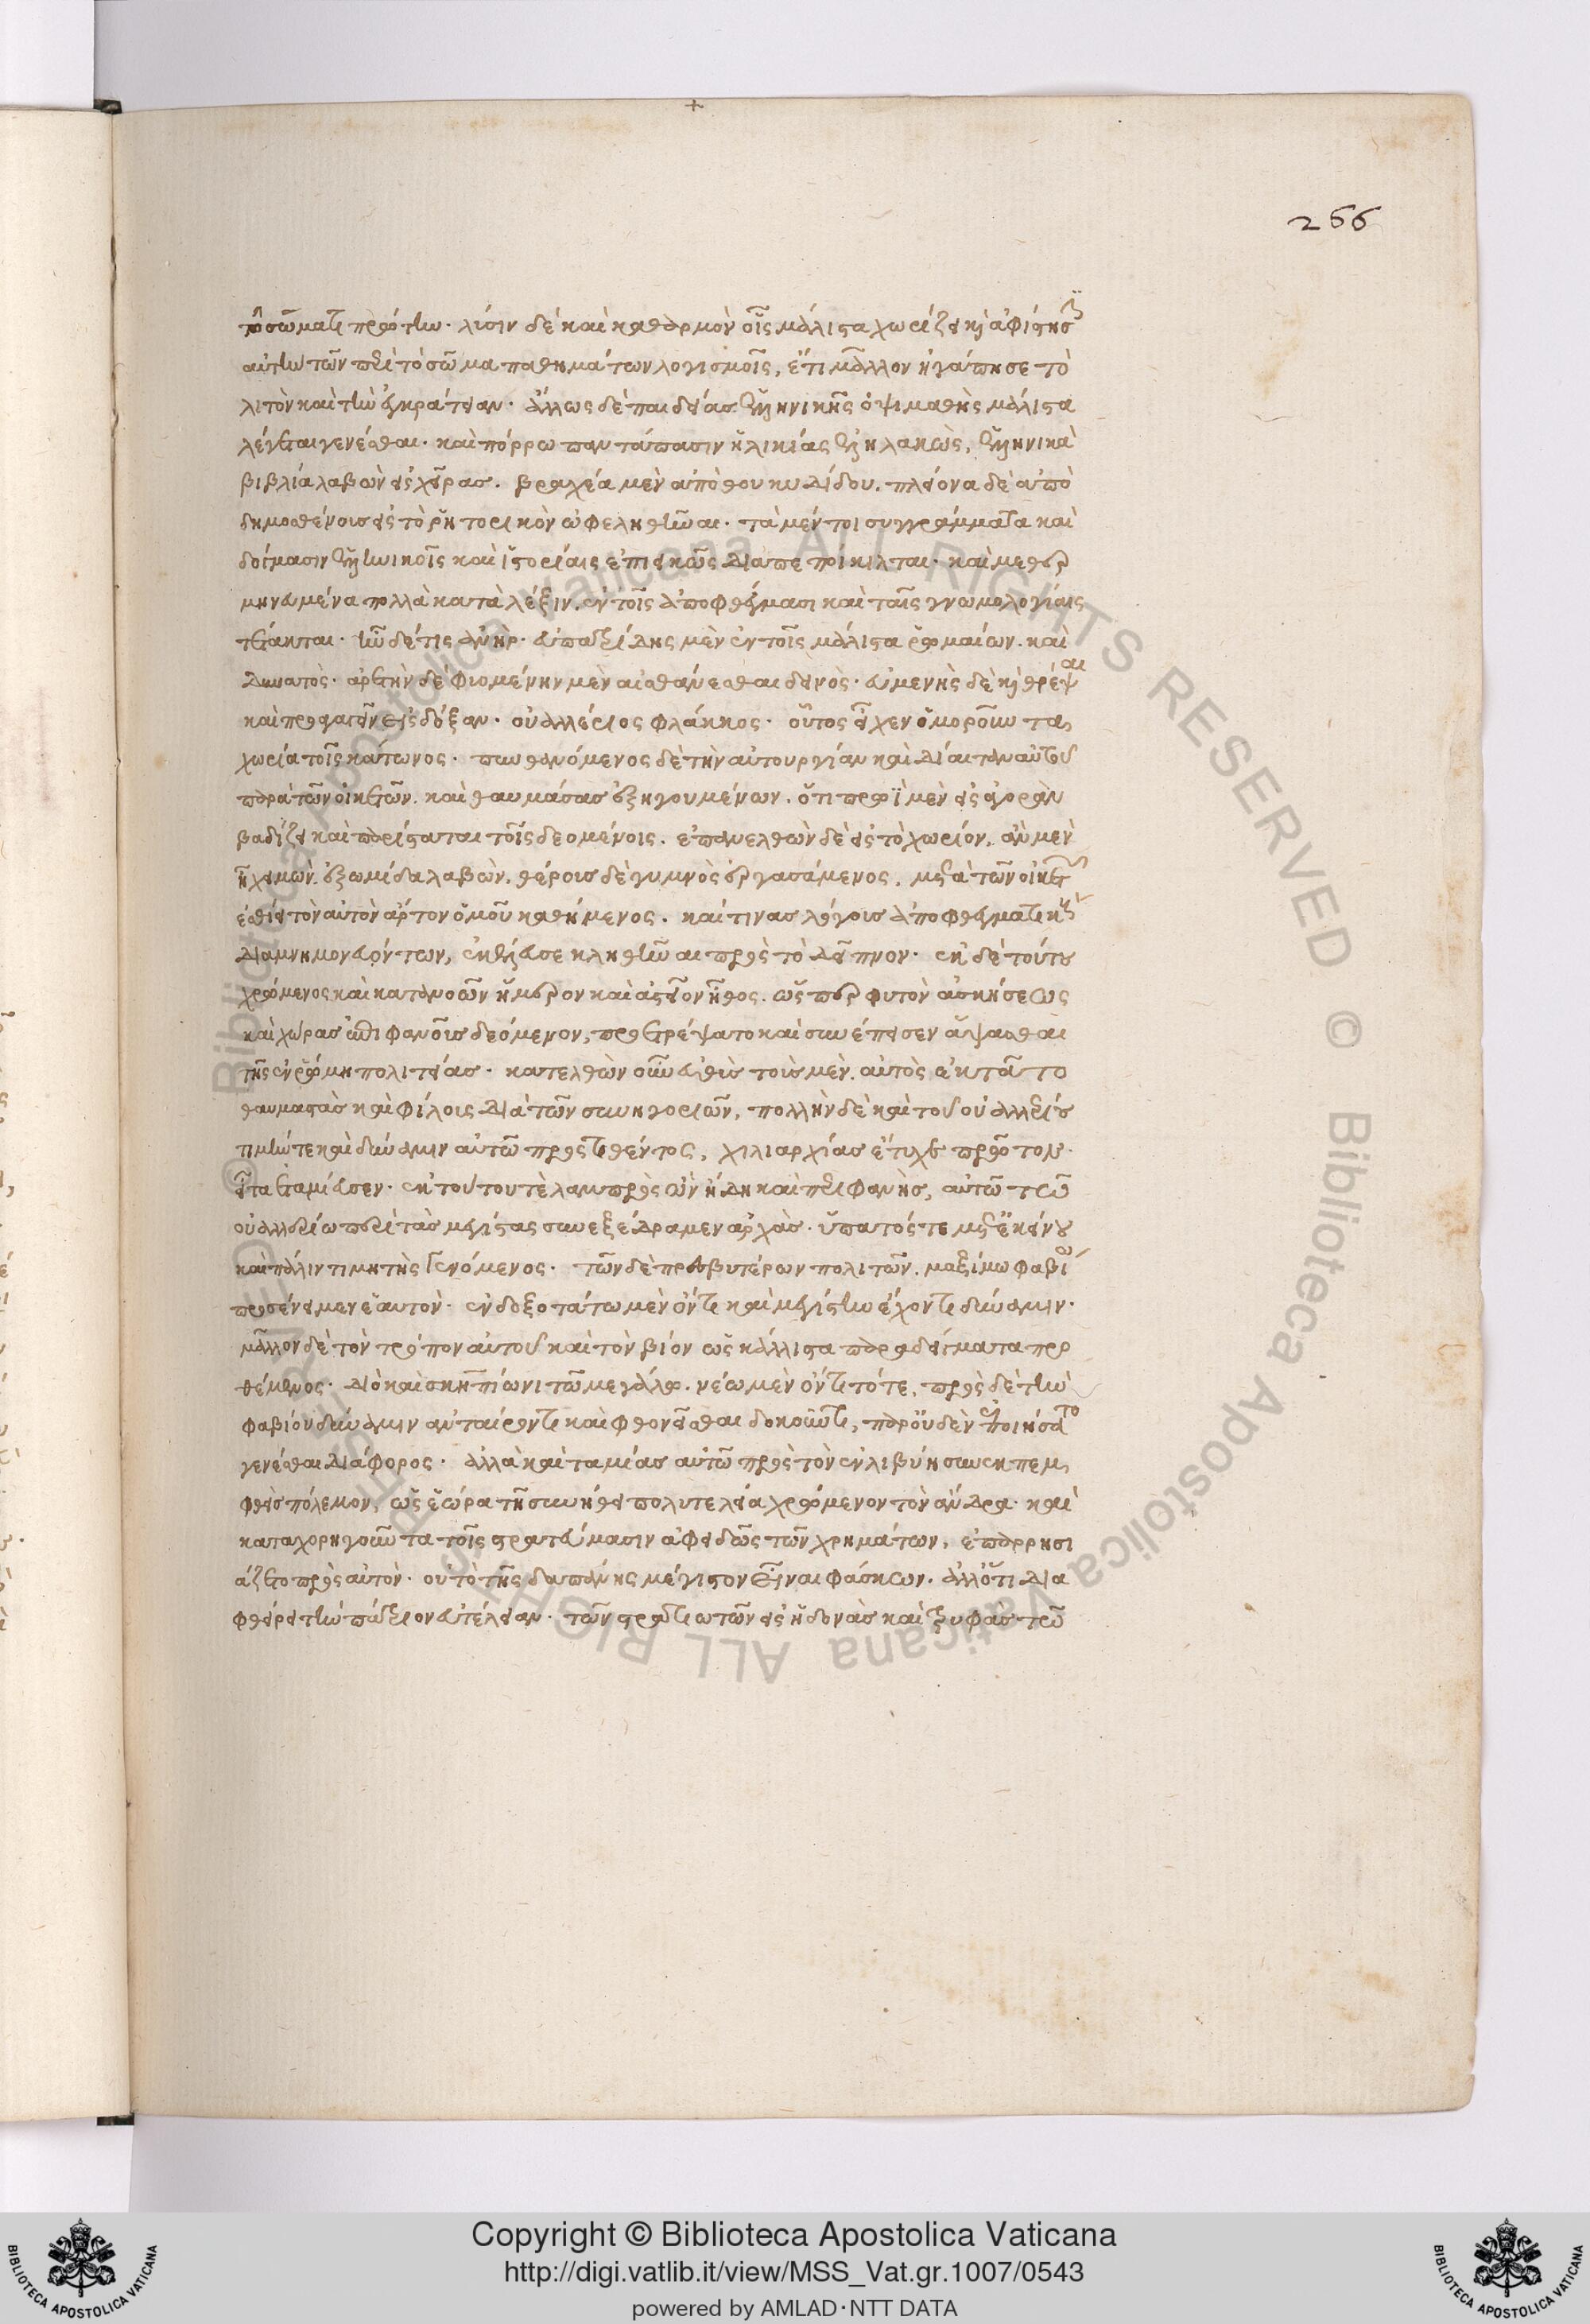 266
τῶ σώματι πρώτην. λύσιν δὲ καὶ καθαρμὸν οἷς μάλιστα χωρίζει καὶ ἀφίστησιν
αὐτὴν τῶν περὶ τὸ σῶμα παθημάτων λογισμοῖς, ἔτι μᾶλλον ἠγάπησε τὸ
λιτὸν καὶ τὴν ἐγκράτειαν. ἄλλως δὲ παιδείας ἑλληνικῆς ὀψιμαθὴς μάλιστα
λέγεται γενέσθαι. καὶ πόρρω παντάπασιν ἡλικίας ἐληλακὼς, ἑλληνικὰ
βιβλία λαβὼν εἰς χεῖρας. βραχέα μὲν ἀπὸ θουκυδίδου. πλείονα δὲ ἀπὸ
δημοσθένους εἰς τὸ ῥητορικὸν ὠφεληθῆναι. τὰ μέντοι συγγράμματα καὶ
δόγμασιν ἑλληνικοῖς καὶ ἱστορίαις ἐπιεικῶς διαπεποίκιλται. καὶ μεθερ
μηνευμένα πολλὰ κατὰ λέξιν, ἐν τοῖς ἀποφθέγμασι καὶ ταῖς γνωμολογίαις
τέτακται. ἦν δέ τις ἀνὴρ. εὐπατρίδης μὲν ἐν τοῖς μάλιστα ῥωμαίων. καὶ
δυνατὸς. ἀρετὴν δὲ φυομένην μὲν αἰσθάνεσθαι δεινὸς. εὐμενὴς δὲ καὶ θρέψαι
καὶ προαγαγεῖν εἰς δόξαν. οὐαλλέριος φλάκκος. οὗτος εἶχεν ὁμοροῦντα
χωρία τοῖς κάτωνος. πυνθανόμενος δὲ τὴν αὐτουργίαν καὶ δίαιταν αὐτοῦ
παρὰ τῶν οἰκετῶν. καὶ θαυμάσας ἐξηγουμένων. ὅτι πρωῒ μὲν εἰς ἀγορὰν
βαδίζει καὶ παρίσταται τοῖς δεομένοις. ἐπανελθὼν δὲ εἰς τὸ χωρίον, ἂν μὲν
ἦ χειμὼν. ἐξωμίδα λαβὼν. θέρους δὲ γυμνὸς ἐργασάμενος. μετὰ τῶν οἰκετῶν
ἐσθίει τὸν αὐτὸν ἄρτον ὁμοῦ καθήμενος. καί τινας λόγους ἀποφθεγματικοὺς
διαμνημονευόντων, ἐκέλευσε κληθῆναι πρὸς τὸ δεῖπνον. ἐκ δὲ τούτου
χρώμενος καὶ κατανοῶν ἥμερον καὶ ἀστεῖον ἦθος. ὥσπερ φυτὸν ἀσκήσεως
καὶ χώρας ἐπιφανοῦς δεόμενον, προετρέψατο καὶ συνέπεισεν ἅψασθαι
τῆς ἐν ῥώμη πολιτείας. κατελθὼν οὖν εὐθὺς τοὺς μὲν. αὐτὸς ἐκτᾶτο
θαυμαστὰς καὶ φίλους διὰ τῶν συνηγοριῶν, πολλὴν δὲ καὶ τοῦ οὐαλλερίου
τιμήν τε καὶ δύναμιν αὐτῶ προστιθέντος, χιλιαρχίας ἔτυχε πρῶτον.
εἶτα ἐταμίευσεν. ἐκ τούτου τε λαμπρὸς ὢν ἤδη καὶ περιφανὴς, αὐτῶ τῶ
οὐαλλερίω περὶ τὰς μεγίστας συνεξέδραμεν ἀρχὰς. ὕπατός τε μετ' ἐκείνου
καὶ πάλιν τιμητὴς γενόμενος. τῶν δὲ πρεσβυτέρων πολιτῶν. μαξίμω φαβίω
προσένειμεν ἑαυτὸν. ἐνδοξοτάτω μὲν ὄντι καὶ μεγίστην ἔχοντι δύναμιν.
μᾶλλον δὲ τὸν τρόπον αὐτοῦ καὶ τὸν βίον ὡς κάλλιστα παραδείγματα προ
θέμενος. διὸ καὶ σκηπίωνι τῶ μεγάλω. νέω μὲν ὄντι τότε, πρὸς δὲ τὴν
φαβίου δύναμιν ἀνταίροντι καὶ φθονεῖσθαι δοκοῦντι, παρ' οὐδὲν ἐποιήσατο
γενέσθαι διάφορος. ἀλλὰ καὶ ταμίας αὐτῶ πρὸς τὸν ἐν λιβύη συνεκπεμ
φθεὶς πόλεμον, ὡς ἑώρα τῆ συνήθει πολυτελεία χρώμενον τὸν ἄνδρα. καὶ
καταχορηγοῦντα τοῖς στρατεύμασιν ἀφειδῶς τῶν χρημάτων, ἐπαρρησι
άζετο πρὸς αὐτὸν. οὐ τὸ τῆς δαπάνης μέγιστον εἶναι φάσκων. ἀλλ' ὅτι δια
φθείρει τὴν πάτριον εὐτέλειαν. τῶν στρατιωτῶν εἰς ἡδονὰς καὶ τρυφὰς τῶ
Copyright © Biblioteca Apostolica Vaticana
http://digi.vatlib.it/view/MSS_Vat.gr.1007/0543
powered by AMLAD·NTT DATA